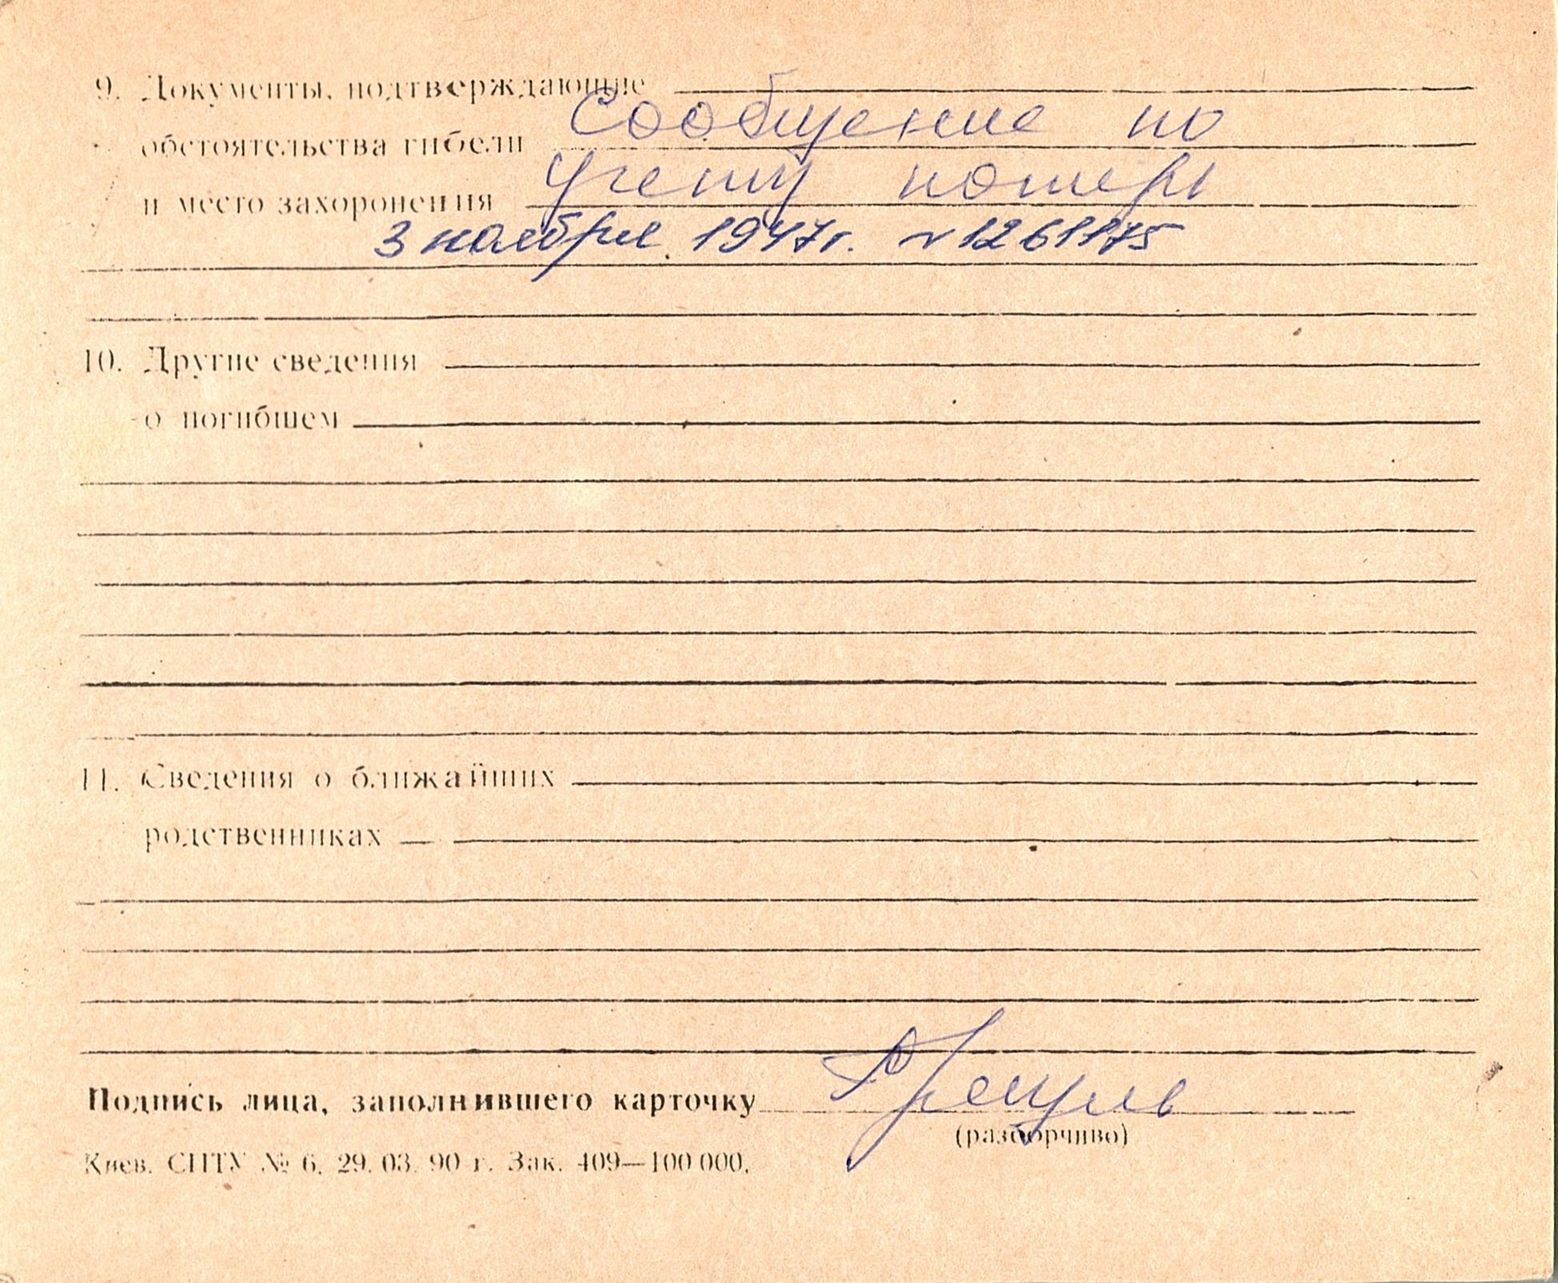 9. Документы, подтверждающие
обстоятельства гибели Сообщение по
и место захоронения учету потерь
3 ноября 1947г. № 1261175
10. Другие сведения
о погибшем
11. Сведения о ближайших
родственниках
Подпись лица, заполнившего карточку
(разборчиво)
Киев. СПТУ № 6. 29. 03. 90 г. Зак. 409—100 000.